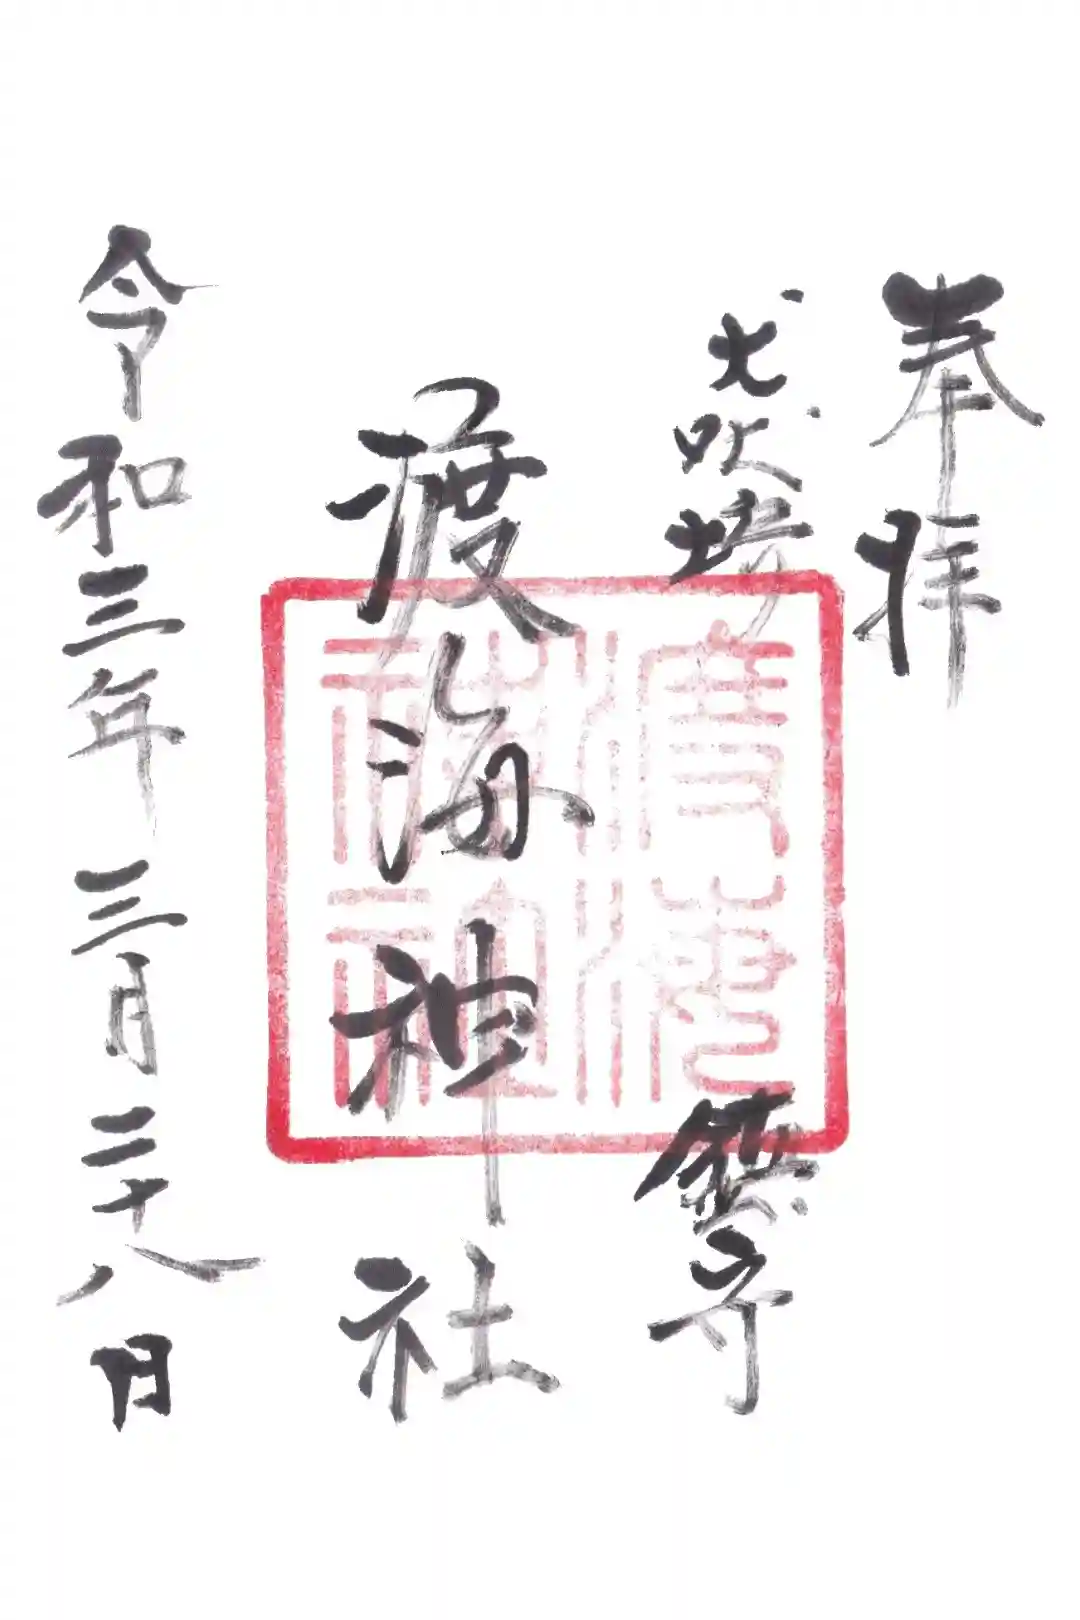 奉拝
犬吠埼 鎮守
渡海神社
令和三年三月二十八日
渡海
神社